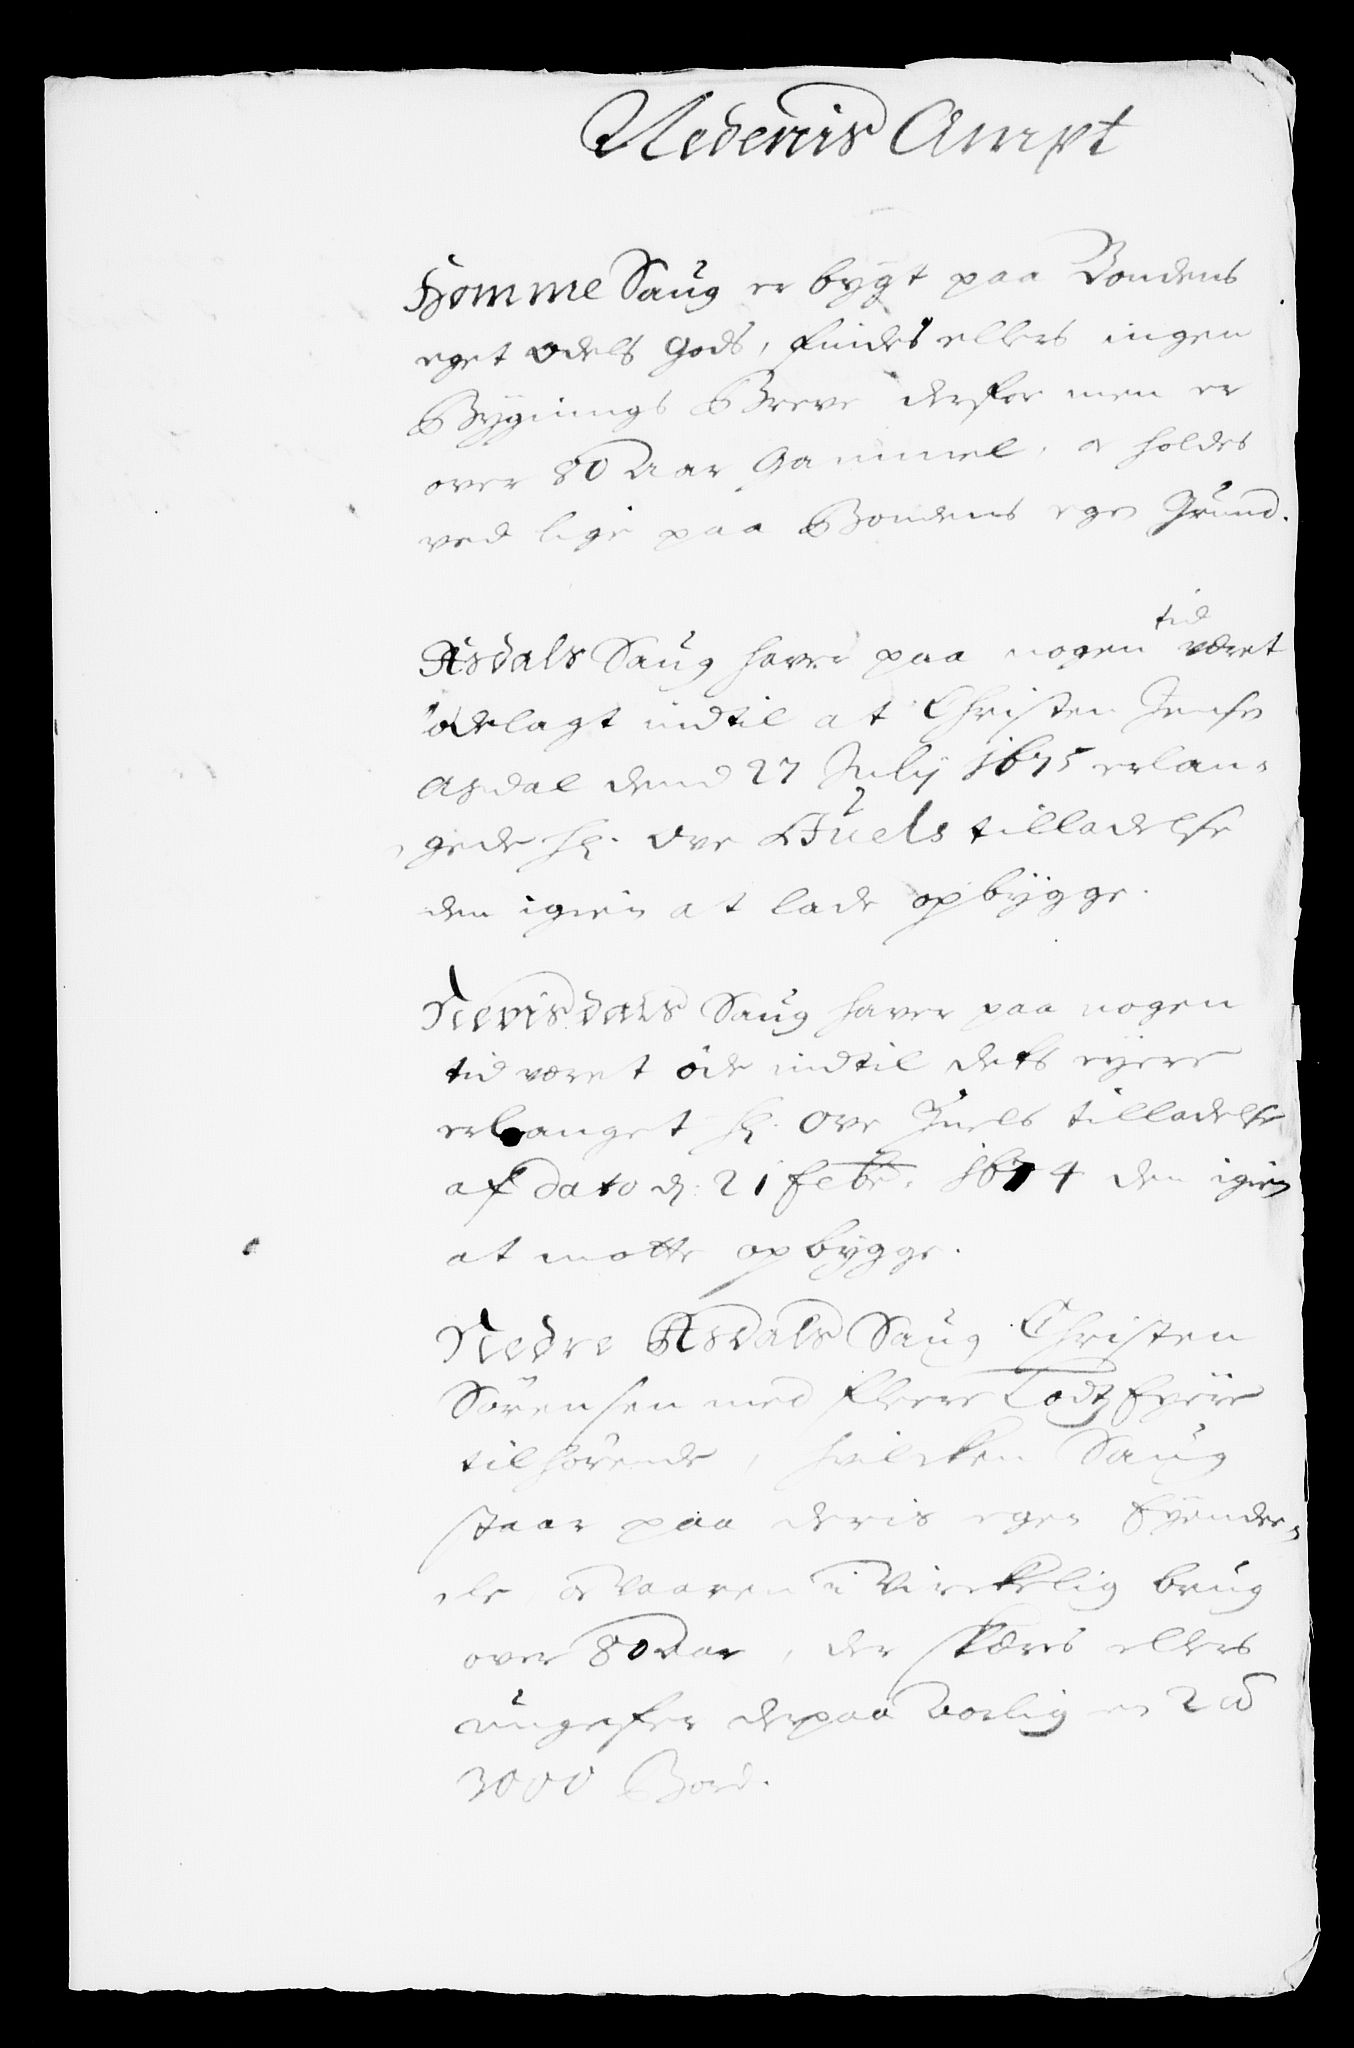 Nedenis Ampt
Homme Saug er bygt paa Bondens
eget odels Gods, findes ellers ingen
Bygnings Breve derfor men er
over 80 Aar Gammel, og holdes
ved lige paa Bondens egen Grund.
tid
Asdals Saug haver paa nogen været
ødelagt indtil at Christen Jensen
Asdal dend 27 July 1675 erlan-
gede Hr. Ove Juels tilladelse
den igien at lade opbygge.
Nevisdals Saug haver paa nogen
tid været øde indtil dets eyere
erlanget Hr. Ove Juels tilladelse
af dato d: 21 febr. 1674 den igien
at motte opbygge.
Nedre Asdals Saug Christen
Sörensen med fleere Lodz Eyere
tilhörende, hvilcken Saug
staar paa deris egen Eyende-
le, og vaaren i Virckelig brug
over 80 Aar, der skæres ellers
ungefer derpaa Aarlig en 2 a
3000 Bord.